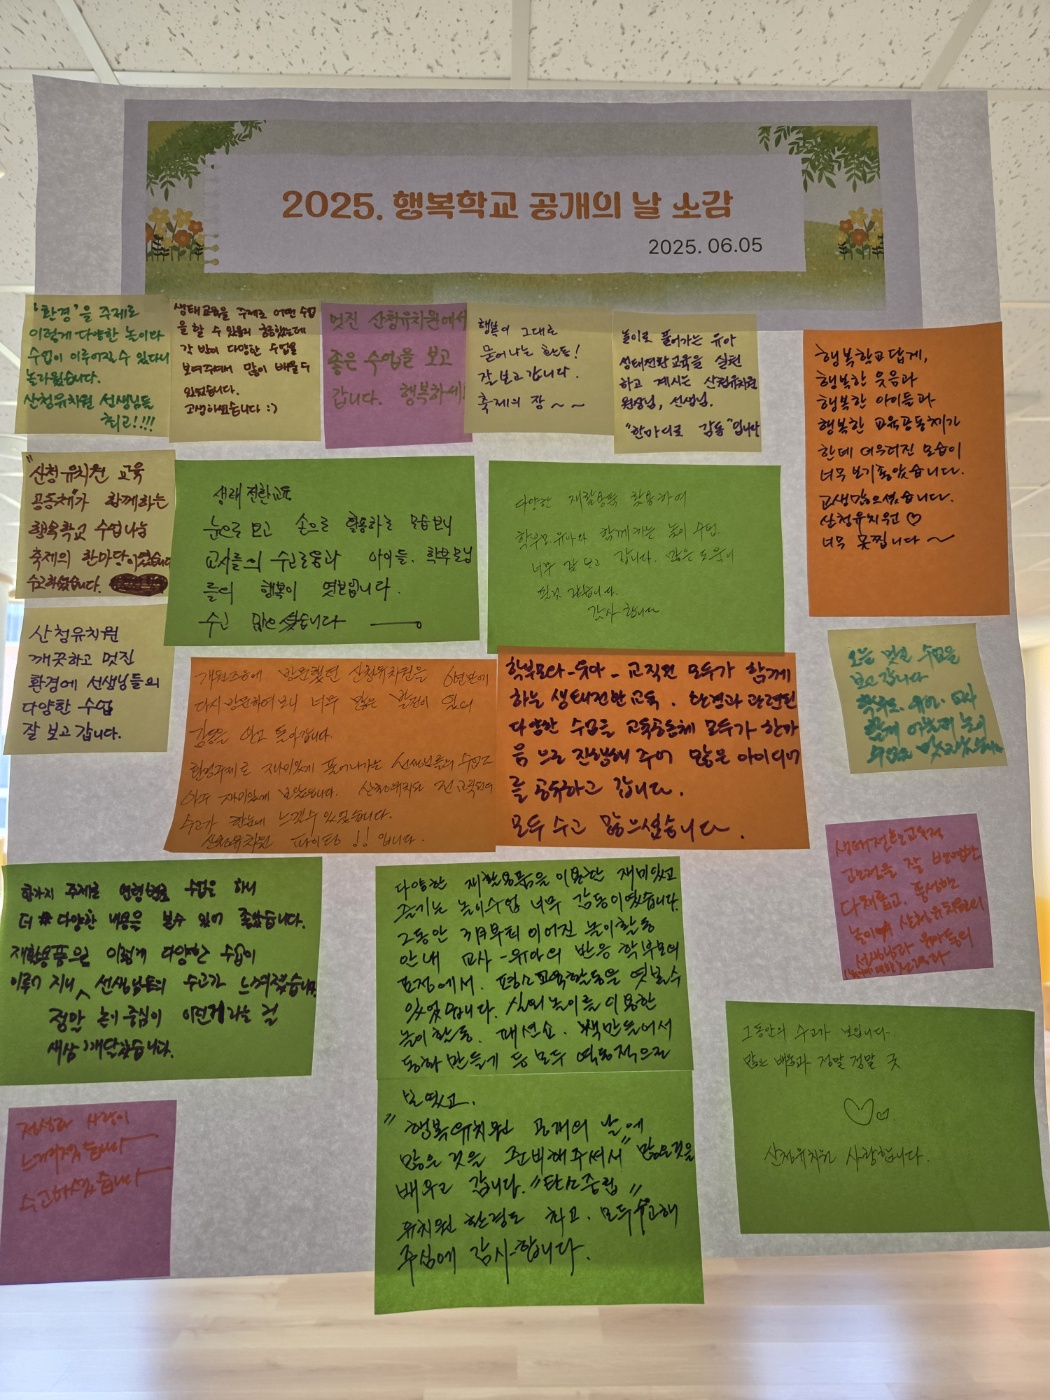 2025. 행복학교 공개의 날 소감
2025. 06.05
"환경"을 주제로
이렇게 다양한 놀이와
수업이 이루어질 수 있다니
놀라웠습니다.
산청유치원 선생님들
최고!!!!
생태교육을 주제로 어떤 수업
을 할 수 있을지 궁금했는데
각 반이 다양한 수업을
보여주셔서 많이 배울 수
있었습니다.
고생하셨습니다 :)
멋진 산청유치원에서
좋은 수업을 보고
갑니다. 행복하세
행복이 그대로
묻어나는 한 날!
잘 보고 갑니다.
축제의 장 ~ ~
놀이로 풀어가는 유아
생태전환교육을 실천
하고 계시는 산청유치원
원장님, 선생님.
"한마디로 감동"입니다
행복학교답게,
행복한 웃음과
행복한 아이들과
행복한 교육공동체가
한데 어우러진 모습이
너무 보기좋았습니다.
고생많으셨습니다.
산청유치원 ♡
너무 멋집니다 ~
"산청유치원 교육
공동체가 함께하는
행복학교 수업나눔
축제의 한마당이었습니다
수고하셨습니다.
생태전환교육
눈으로 보고 손으로 활용하는 모습보니
교사들의 수고로움과 아이들. 학부모님
들의 행복이 엿보입니다.
수고 많으셨습니다
다양한 재활용품 활용하여
학부모 유아와 함께하는 놀이 수업.
너무 잘 보고 갑니다. 많은 도움이
되고 갑니다.
감사합니다
산청유치원
깨끗하고 멋진
환경에 선생님들의
다양한 수업
잘 보고 갑니다.
개원초에 방문했던 산청유치원을 6년만에
다시 방문하여보니 너무 많은 발전이 있어
감동을 안고 돌아갑니다.
환경주제로 재미있게 풀어나가는 선생님들의 수업도
아주 재미있게 보았습니다. 산청유치원 전 교직원의
수고가 한눈에 느낄 수 있었습니다.
산청유치원 파이팅 !! 입니다.
학부모다-유아-교직원 모두가 함께
하는 생태전환교육. 환경과 관련된
다양한 수업을 교육공동체 모두가 한마
음으로 진행해 주어 많은 아이디어
를 공유하고 갑니다.
모두 수고 많으셨습니다.
오늘 멋진 수업을
보고갑니다
학부모. 유아. 교사
함께 어우러진 놀이
수업은 멋지셨습니다
생태전환교육과
관련을 잘 반영한
다채롭고. 풍성한
놀이에 산청유치원의
선생님과 유아들의
한가지 주제로 연령별로 수업을 하니
더 다양한 내용을 볼수 있어 좋았습니다.
재활용품으로 이렇게 다양한 수업이
이루어 지니, 선생님들의 수고가 느껴졌습니다.
정말 놀이중심이 이런거라는 걸
새삼 깨달았습니다.
다양한 재활용품을 이용한 재미있고
즐기는 놀이수업 너무 감동이였습니다.
그동안 3월부터 이어진 놀이활동
안내 교사-유아의 반응 학부모의
표정에서. 평소교육활동을 엿볼수
있었습니다. 실외놀이를 이용한
놀이활동. 패션쇼. 책만들에서
동화 만들기 등 모두 역동적으로
보였고.
"행복유치원 공개의 날에
많은 것을 준비해주셔서" 많은것을
배우고 갑니다. "탄소중립"
유치원 환경도 하고. 모두수고해
주심에 감사합니다.
그동안의 수고가 보입니다.
많은 배움과 정말 정말 굿
♡♡
산청유치원 사랑합니다.
정성과 사랑이
느껴졌습니다
수고하셨습니다